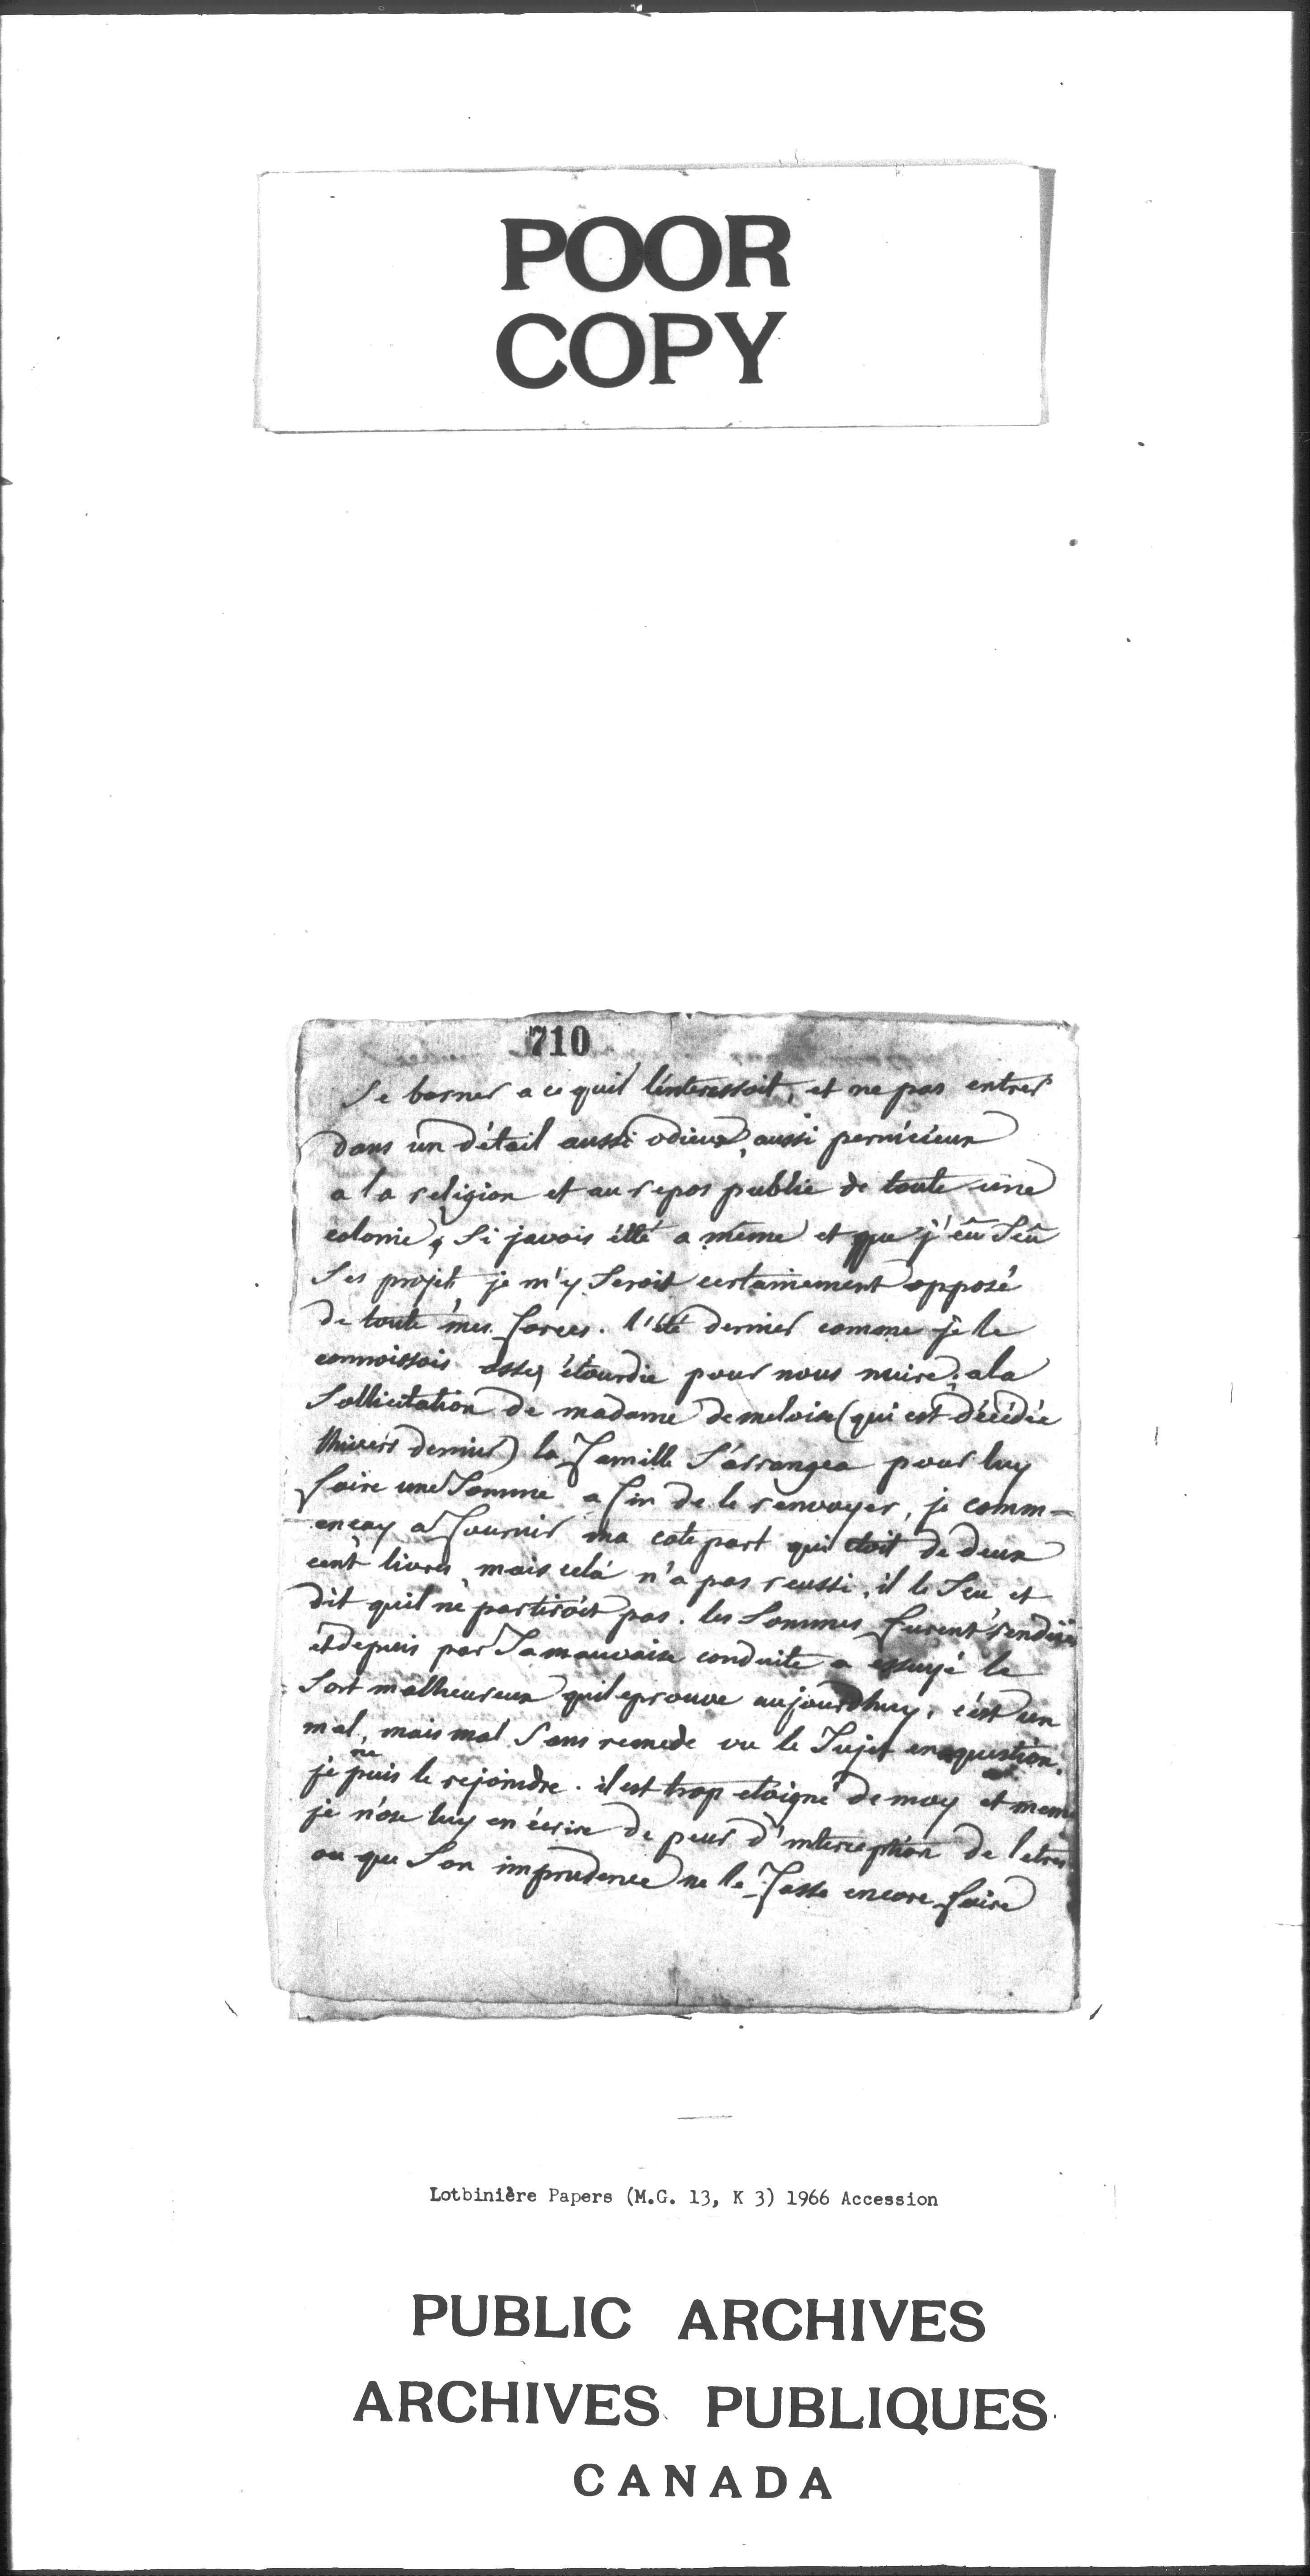 POOR
COPY
710
Se borner a ce quil l'interessoit, et ne pas entrer
dans un détail aussi odieux, aussi pernicieux
a la religion et au repos public de toute une
colonie, Si javois été a même et que j'eû Seû
Ses projets je m'y Seroit certainement opposé
de toute mes forces. l'été dernier comme je le
connoissois assez étourdie pour nous nuire, a la
Sollicitation de madame demeloise (qui est décédée
lhivers dernier) la famille S'arrangea pour luy
faire une Somme a fin de le renvoyer, je comm-
ençay a fournir ma cote part qui étoit de deux
cent livres, mais celà n'a pas reussi, il le Seu et
dit quil ne partiroit pas. les Sommes furent rendües
et depuis par Sa mauvaise conduite a essuyé le
Sort malheureux quil eprouve aujourdhuy, c'est un
mal, mais mal Sans remede vu le Sujet en question.
je ne puis le rejoindre. il est trop eloigné de moy et meme
je n'ose luy en écrire de peur d'interception de letres
ou que Son imprudence ne le fasse encore faire
Lotbinière Papers (M.G. 13, K 3) 1966 Accession
PUBLIC ARCHIVES
ARCHIVES PUBLIQUES
CANADA